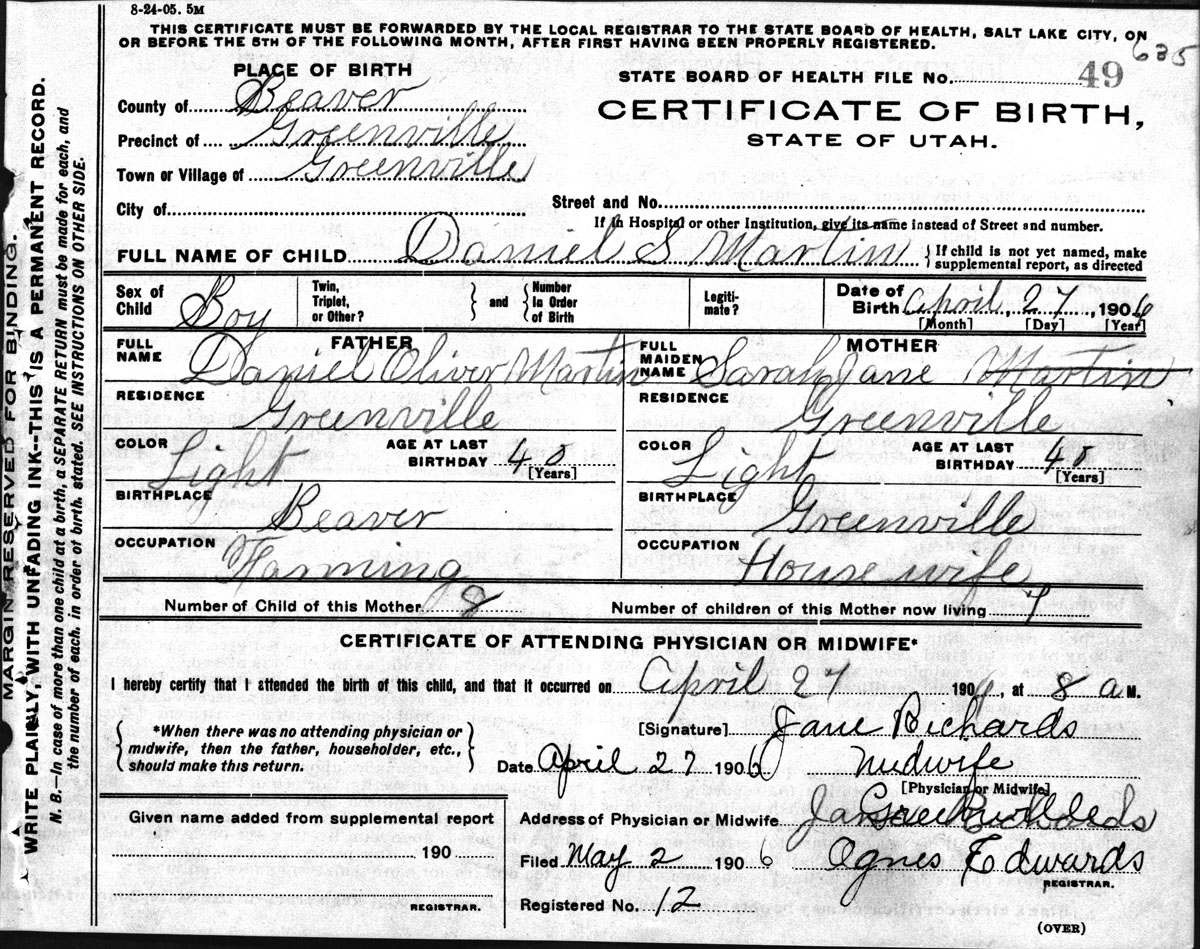 8-24-05. 5M
THIS CERTIFICATE MUST BE FORWARDED BY THE LOCAL REGISTRAR TO THE STATE BOARD OF HEALTH, SALT LAKE CITY, ON
OR BEFORE THE 5TH OF THE FOLLOWING MONTH, AFTER FIRST HAVING BEEN PROPERLY REGISTERED.
635
PLACE OF BIRTH
STATE BOARD OF HEALTH FILE No. 49
County of Beaver
CERTIFICATE OF BIRTH,
Precinct of Greenville
STATE OF UTAH.
Town or Village of Greenville
City of
Street and No.
If in Hospital or other Institution, give its name instead of Street and number.
FULL NAME OF CHILD Daniel S Martin
{If child is not yet named, make
supplemental report, as directed
Sex of Child Boy
Twin, Triplet, or Other? } and { Number in Order of Birth
Legiti-mate?
Date of Birth April 27, 1906
[Month] [Day] [Year]
FATHER
FULL NAME Daniel Oliver Martin
RESIDENCE Greenville
COLOR Light AGE AT LAST BIRTHDAY 40 [Years]
BIRTHPLACE Beaver
OCCUPATION Farming
MOTHER
FULL MAIDEN NAME Sarah Jane Martin
RESIDENCE Greenville
COLOR Light AGE AT LAST BIRTHDAY [Years]
BIRTHPLACE Greenville
OCCUPATION House wife
Number of Child of this Mother 8 Number of children of this Mother now living 7
CERTIFICATE OF ATTENDING PHYSICIAN OR MIDWIFE*
I hereby certify that I attended the birth of this child, and that it occurred on April 27 1906, at 8 a M.
{ *When there was no attending physician or
midwife, then the father, householder, etc.,
should make this return. }
[Signature] Jane Richards
Date April 27 1906 Midwife
[Physician or Midwife]
Given name added from supplemental report
190
REGISTRAR.
Address of Physician or Midwife
Filed May 2 1906 Agnes Edwards
REGISTRAR.
Registered No. 12
(OVER)
MARGIN RESERVED FOR BINDING.
WRITE PLAINLY, WITH UNFADING INK--THIS IS A PERMANENT RECORD.
N. B.—In case of more than one child at a birth, a SEPARATE RETURN must be made for each, and
the number of each, in order of birth, stated. SEE INSTRUCTIONS ON OTHER SIDE.